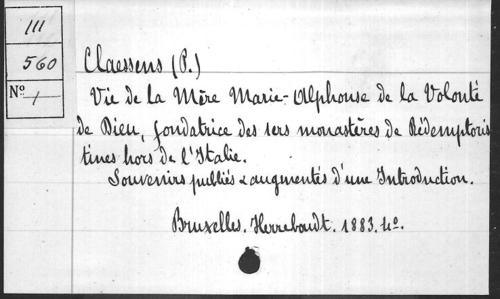 III
560
Nº 1
Claessens (P.)
Vie de la Mère Marie-Alphonse de la Volonté
de Dieu, fondatrice des 1ers monastères de Rédemptoris
tines hors de l'Italie.
Souvenirs publiés & augmentés d'une Introduction.
Bruxelles. Herreboudt. 1883. 4o.